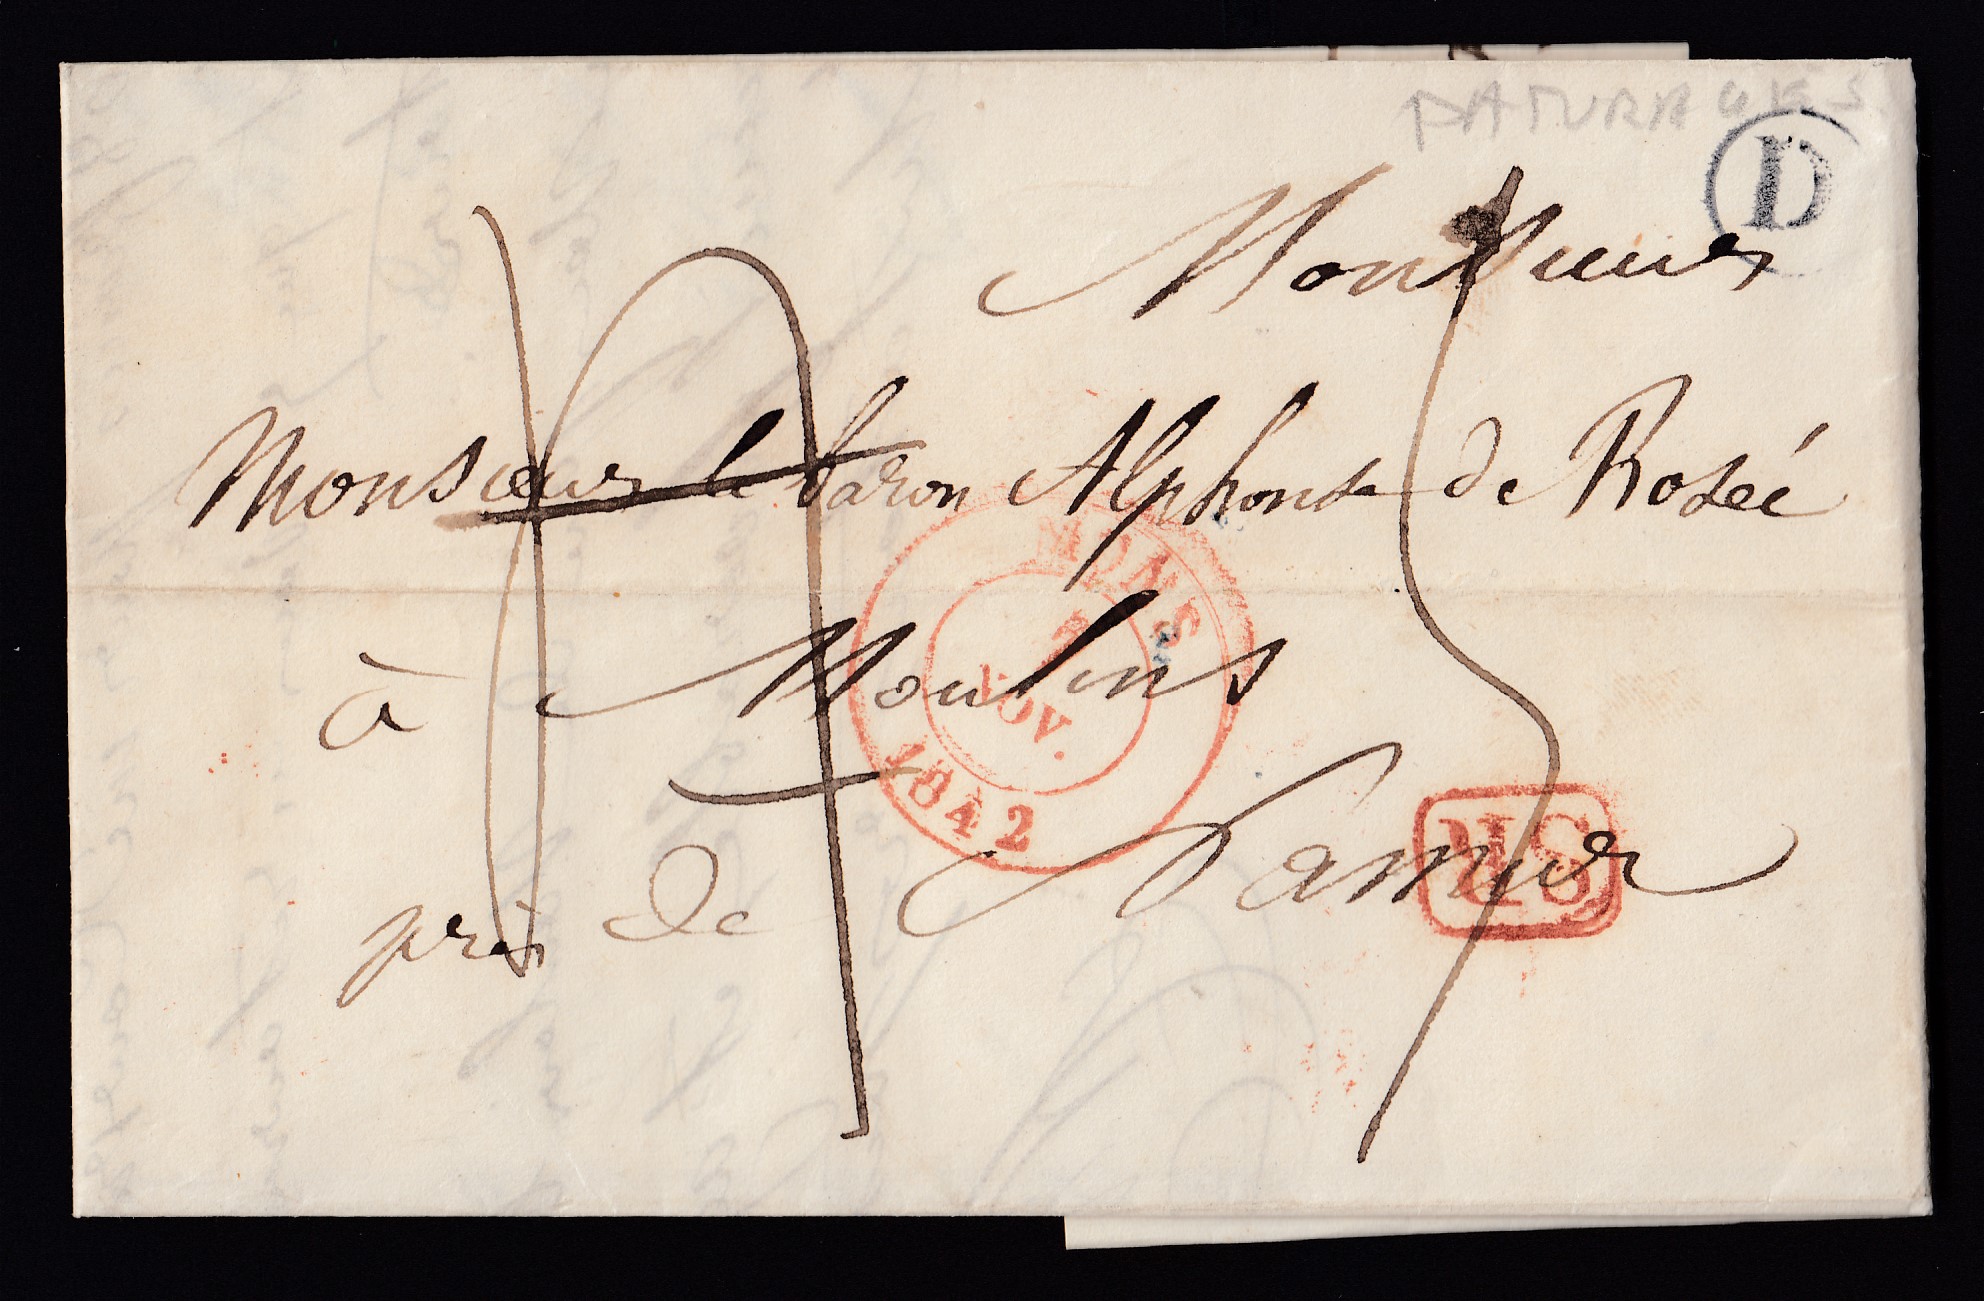 PATURAGES
D
Monsieur
Monsieur le baron Alphonse de Rosée
à Moulins
près de Namur
MONS
2
NOV.
1842
SR